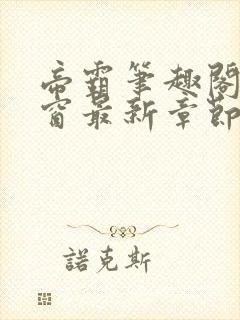 帝霸筆趣閣
窗最新章節
諾克斯